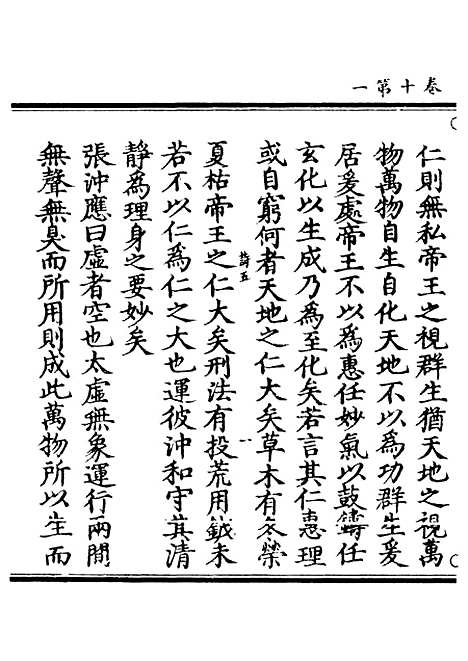 卷十第一
仁則無私帝王之視群生猶天地之視萬
物萬物自生自化天地不以為功群生爰
居爰處帝王不以為惠任妙氣以鼓鑄任
玄化以生成乃為至化矣若言其仁惠理
或自窮何者天地之仁大矣草木有冬榮
夏枯帝王之仁大矣刑法有投荒用鉞未
若不以仁為仁之大也運彼沖和守其清
靜為理身之要妙矣
張沖應曰虛者空也太虛無象運行兩間
無聲無臭而所用則成此萬物所以生而